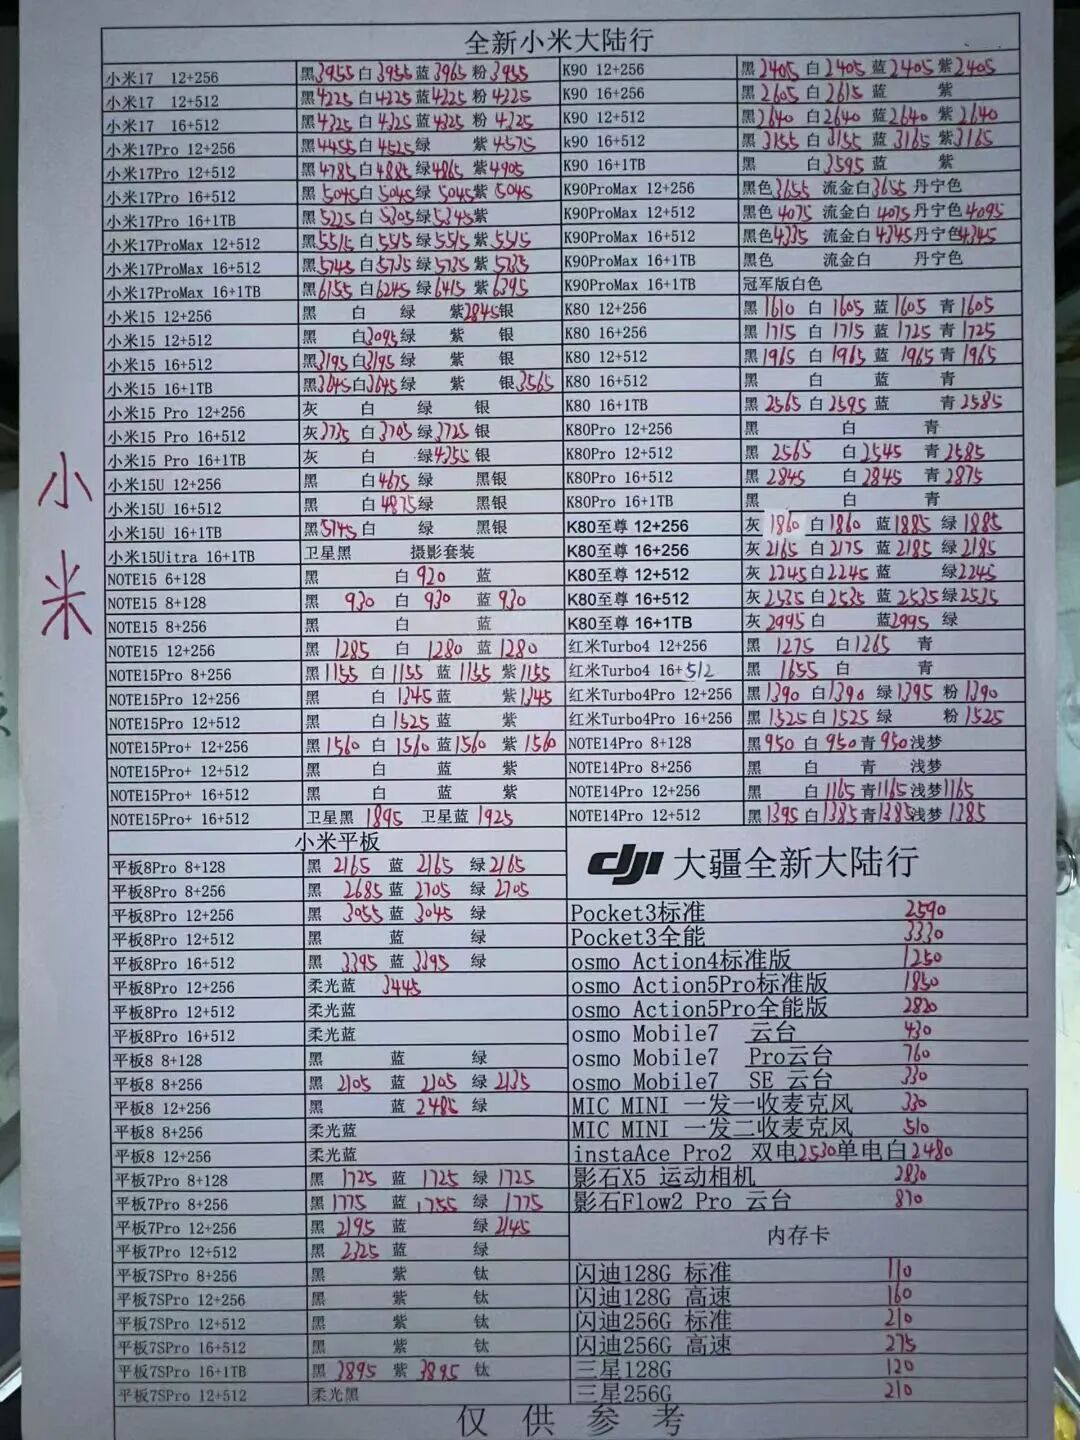 全新小米大陆行
小米17 12+256 黑3955 白3955 蓝3965 粉3955
小米17 12+512 黑4225 白4225 蓝4225 粉4225
小米17 16+512 黑4325 白4325 蓝4325 粉4325
小米17Pro 12+256 黑4455 白4525 绿 紫4575
小米17Pro 12+512 黑4785 白4885 绿4865 紫4905
小米17Pro 16+512 黑5045 白5045 绿5045 紫5045
小米17Pro 16+1TB 黑5225 白5205 绿5345 紫
小米17ProMax 12+512 黑5515 白5515 绿5515 紫5515
小米17ProMax 16+512 黑5745 白5735 绿5735 紫5735
小米17ProMax 16+1TB 黑6155 白6245 绿6415 紫6395
小米15 12+256 黑 白 绿 紫2845 银
小米15 12+512 黑 白3095 绿 紫 银
小米15 16+512 黑3195 白3195 绿 紫 银
小米15 16+1TB 黑3645 白3645 绿 紫 银3565
小米15 Pro 12+256 灰 白 绿 银
小米15 Pro 16+512 灰3735 白3705 绿3725 银
小米15 Pro 16+1TB 灰 白 绿4255 银
小米15U 12+256 黑 白4675 绿 黑银
小米15U 16+512 黑 白4875 绿 黑银
小米15U 16+1TB 黑5145 白 绿 黑银
小米15Uitra 16+1TB 卫星黑 摄影套装
NOTE15 6+128 黑 白920 蓝
NOTE15 8+128 黑 930 白 930 蓝 930
NOTE15 8+256 黑 白 蓝
NOTE15 12+256 黑 1285 白 1280 蓝 1280
NOTE15Pro 8+256 黑1155 白1155 蓝1155 紫1155
NOTE15Pro 12+256 黑 白1345 蓝 紫1345
NOTE15Pro 12+512 黑 白1525 蓝 紫
NOTE15Pro+ 12+256 黑1560 白1560 蓝1560 紫1560
NOTE15Pro+ 12+512 黑 白 蓝 紫
NOTE15Pro+ 16+512 黑 白 蓝 紫
NOTE15Pro+ 16+512 卫星黑 1895 卫星蓝 1925
K90 12+256 黑2405 白2405 蓝2405 紫2405
K90 16+256 黑2605 白2615 蓝 紫
K90 12+512 黑2640 白2640 蓝2640 紫2640
k90 16+512 黑3155 白3155 蓝3165 紫3165
K90 16+1TB 黑 白3595 蓝 紫
K90ProMax 12+256 黑色3655 流金白3655 丹宁色
K90ProMax 12+512 黑色4075 流金白4075 丹宁色4095
K90ProMax 16+512 黑色4335 流金白4345 丹宁色4345
K90ProMax 16+1TB 黑色 流金白 丹宁色
K90ProMax 16+1TB 冠军版白色
K80 12+256 黑1610 白1605 蓝1605 青1605
K80 16+256 黑1715 白1715 蓝1725 青1725
K80 12+512 黑1965 白1965 蓝1965 青1965
K80 16+512 黑 白 蓝 青
K80 16+1TB 黑2565 白2595 蓝 青2585
K80Pro 12+256 黑 白 青
K80Pro 12+512 黑 2565 白2545 青2585
K80Pro 16+512 黑 2845 白2845 青2875
K80Pro 16+1TB 黑 白 青
K80至尊 12+256 灰 1860 白1860 蓝1885 绿1885
K80至尊 16+256 灰2165 白2175 蓝2185 绿2185
K80至尊 12+512 灰2245 白2245 蓝 绿2245
K80至尊 16+512 灰2535 白2535 蓝2535 绿2535
K80至尊 16+1TB 灰2995 白 蓝2995 绿
红米Turbo4 12+256 黑 1275 白1265 青
红米Turbo4 16+512 黑 1655 白 青
红米Turbo4Pro 12+256 黑1390 白1390 绿1395 粉1390
红米Turbo4Pro 16+256 黑1525 白1525 绿 粉1525
NOTE14Pro 8+128 黑950 白950 青950 浅梦
NOTE14Pro 8+256 黑 白 青 浅梦
NOTE14Pro 12+256 黑 白1165 青1165 浅梦1165
NOTE14Pro 12+512 黑1395 白1385 青1385 浅梦1385
小米
小米平板
平板8Pro 8+128 黑 2165 蓝 2165 绿2165
平板8Pro 8+256 黑 2685 蓝 2705 绿2705
平板8Pro 12+256 黑 3055 蓝 3045 绿
平板8Pro 12+512 黑 蓝 绿
平板8Pro 16+512 黑 3395 蓝 3395 绿
平板8Pro 12+256 柔光蓝 3445
平板8Pro 12+512 柔光蓝
平板8Pro 16+512 柔光蓝
平板8 8+128 黑 蓝 绿
平板8 8+256 黑 2105 蓝 2105 绿2135
平板8 12+256 黑 蓝 2485 绿
平板8 8+256 柔光蓝
平板8 12+256 柔光蓝
平板7Pro 8+128 黑 1725 蓝 1725 绿 1725
平板7Pro 8+256 黑1775 蓝 1755 绿 1775
平板7Pro 12+256 黑 2195 蓝 绿2145
平板7Pro 12+512 黑 2325 蓝 绿
平板7SPro 8+256 黑 紫 钛
平板7SPro 12+256 黑 紫 钛
平板7SPro 12+512 黑 紫 钛
平板7SPro 16+512 黑 紫 钛
平板7SPro 16+1TB 黑 3895 紫 3895 钛
平板7SPro 12+512 柔光黑
dji 大疆全新大陆行
Pocket3标准 2590
Pocket3全能 3330
osmo Action4标准版 1250
osmo Action5Pro标准版 1850
osmo Action5Pro全能版 2820
osmo Mobile7 云台 430
osmo Mobile7 Pro云台 760
osmo Mobile7 SE 云台 330
MIC MINI 一发一收麦克风 330
MIC MINI 一发二收麦克风 510
instaAce Pro2 双电2530单电白2480
影石X5 运动相机 2830
影石Flow2 Pro 云台 810
内存卡
闪迪128G 标准 110
闪迪128G 高速 160
闪迪256G 标准 210
闪迪256G 高速 275
三星128G 120
三星256G 210
仅供参考